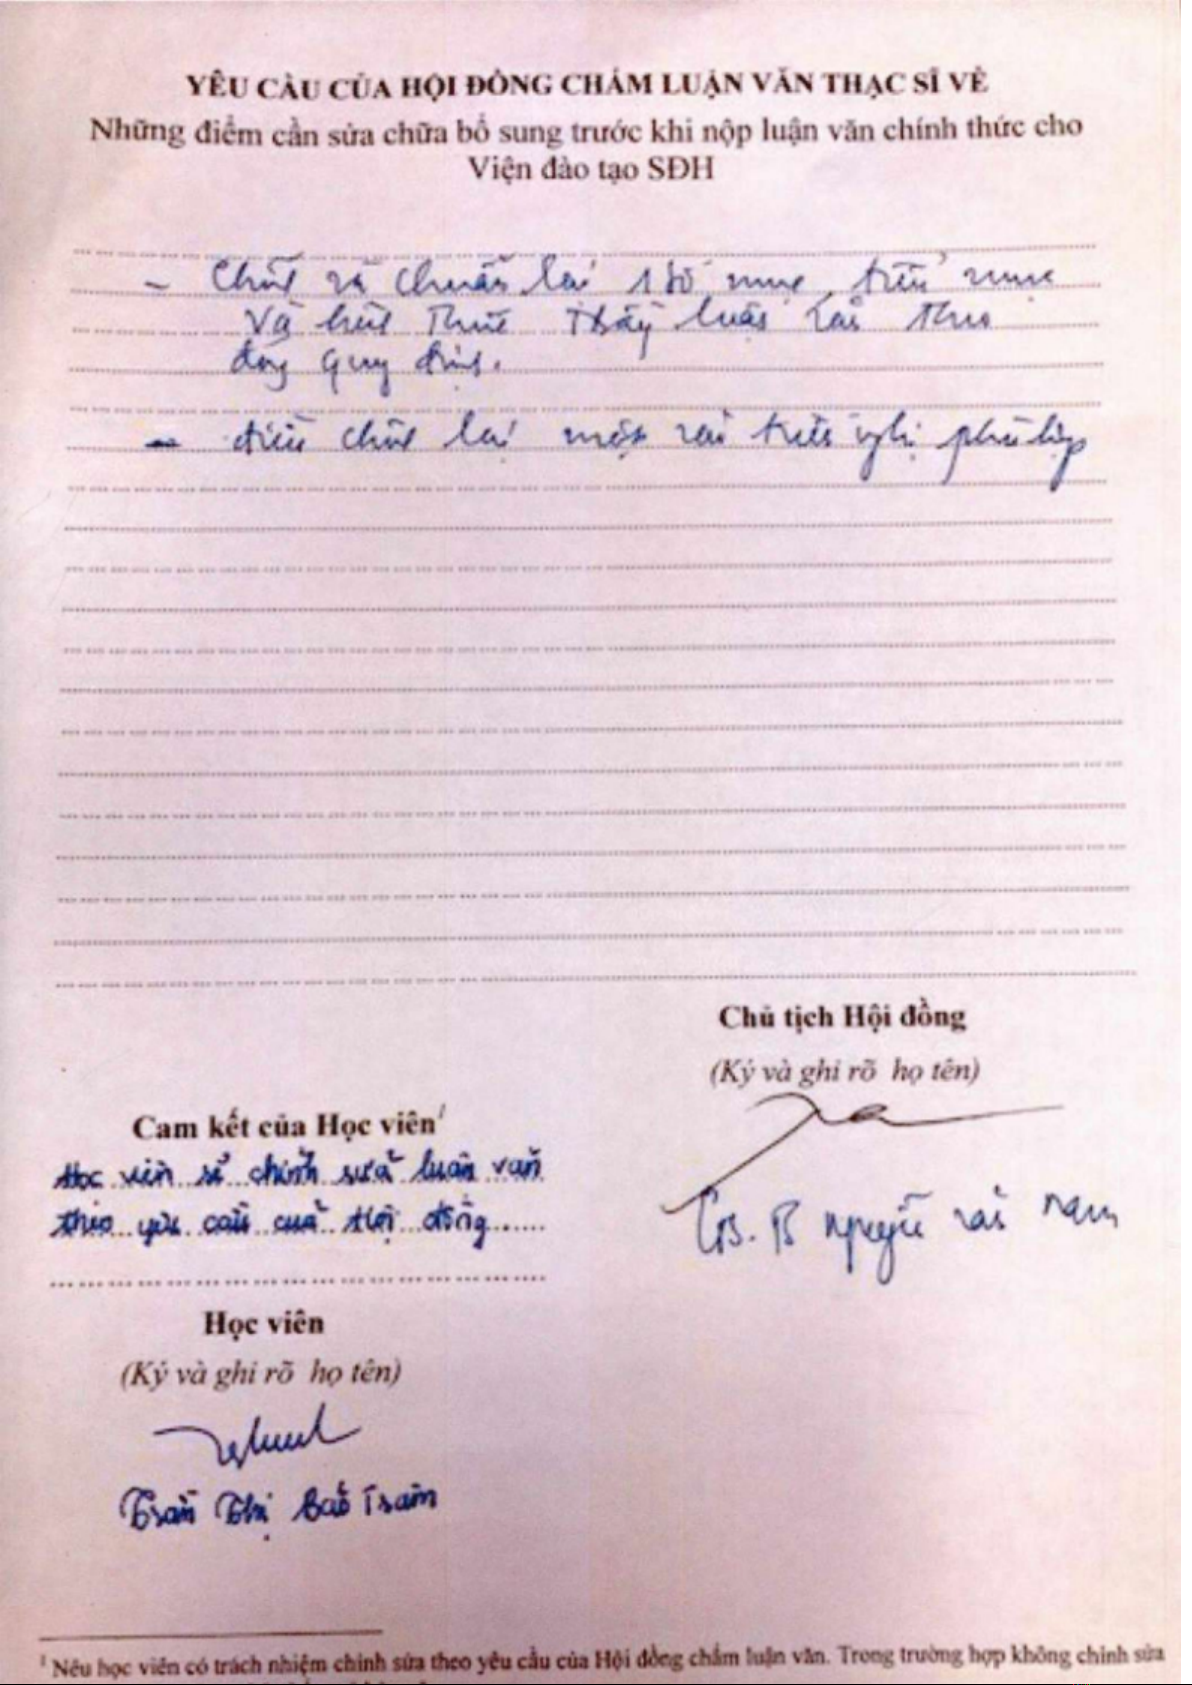 YÊU CẦU CỦA HỘI ĐỒNG CHẤM LUẬN VĂN THẠC SĨ VỀ
Những điểm cần sửa chữa bổ sung trước khi nộp luận văn chính thức cho
Viện đào tạo SĐH
- Chỉnh và chuẩn lại 1 số mục, tiểu mục
và hình thức luận theo
đúng quy định.
- điều chỉnh lại một vài kiến nghị phù hợp
Chủ tịch Hội đồng
(Ký và ghi rõ họ tên)
Cam kết của Học viên¹
Học viên sẽ chỉnh sửa luận văn
theo yêu cầu của Hội đồng
Nguyễn Nam
Học viên
(Ký và ghi rõ họ tên)
Trần Thị Bảo Trâm
¹ Nếu học viên có trách nhiệm chỉnh sửa theo yêu cầu của Hội đồng chấm luận văn. Trong trường hợp không chỉnh sửa